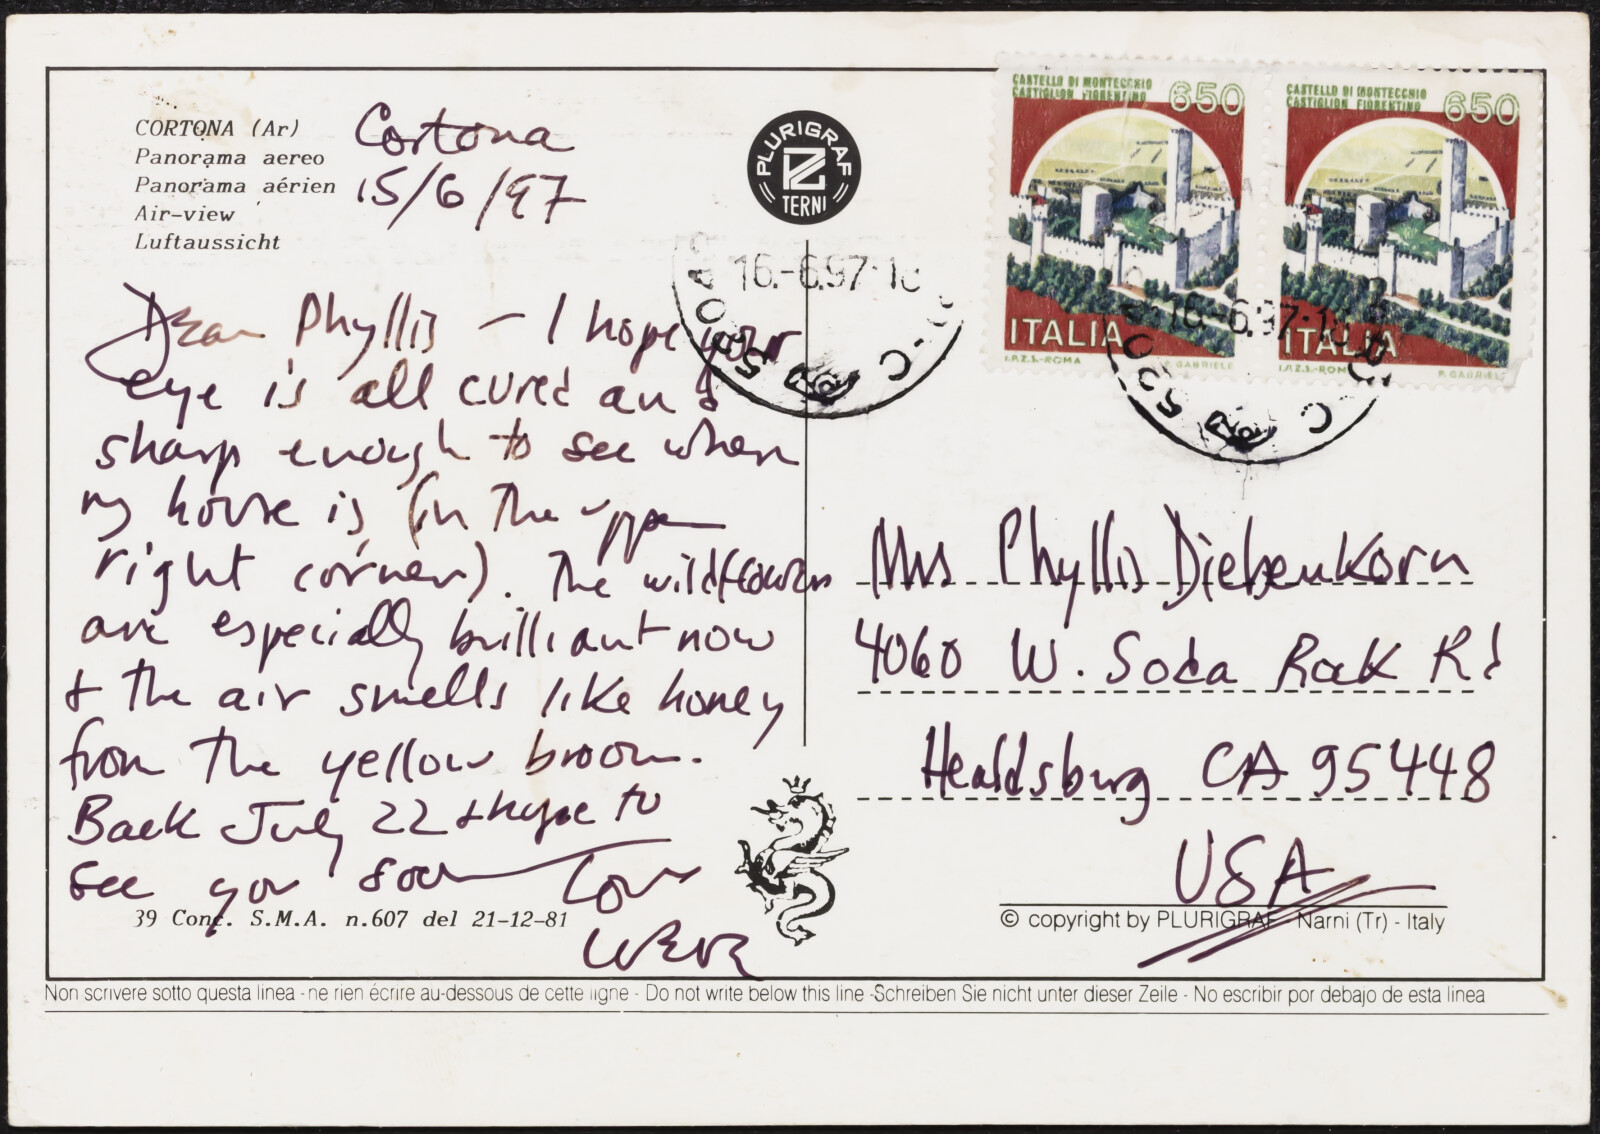 CORTONA (Ar)
Panorama aereo
Panorama aérien
Air-view
Luftaussicht
Cortona
15/6/97
Dear Phyllis – I hope your
eye is all cured and
sharp enough to see where
my house is (in the upper
right corner). The wildflowers
are especially brilliant now
& the air smells like honey
from the yellow broom.
Back July 22 & hope to
see you soon
Love
39 Conc. S.M.A. n.607 del 21-12-81
PLURIGRAF
TERNI
16.-6.97.18
CASTELLO DI MONTECCHIO
CASTIGLION FIORENTINO
650
ITALIA
I.P.Z.S.-ROMA
P. GABRIELE
CASTELLO DI MONTECCHIO
CASTIGLION FIORENTINO
650
ITALIA
I.P.Z.S.-ROMA
P. GABRIELE
16.-6.97.18
Mrs Phyllis Diebenkorn
4060 W. Soda Rock Rd
Healdsburg CA 95448
USA
© copyright by PLURIGRAF - Narni (Tr) - Italy
Non scrivere sotto questa linea - ne rien écrire au-dessous de cette ligne - Do not write below this line -Schreiben Sie nicht unter dieser Zeile - No escribir por debajo de esta linea